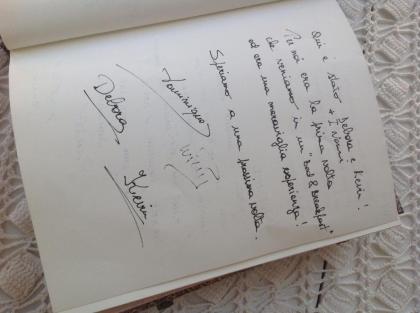 Qui è stato Debora e Kevin!
+ I nonni
Per noi era la prima volta
che veniamo in un "Bed & Breakfast"
ed era una maraviglia esperienza!
Speriamo a una prossima volta.
Debora
Kevin